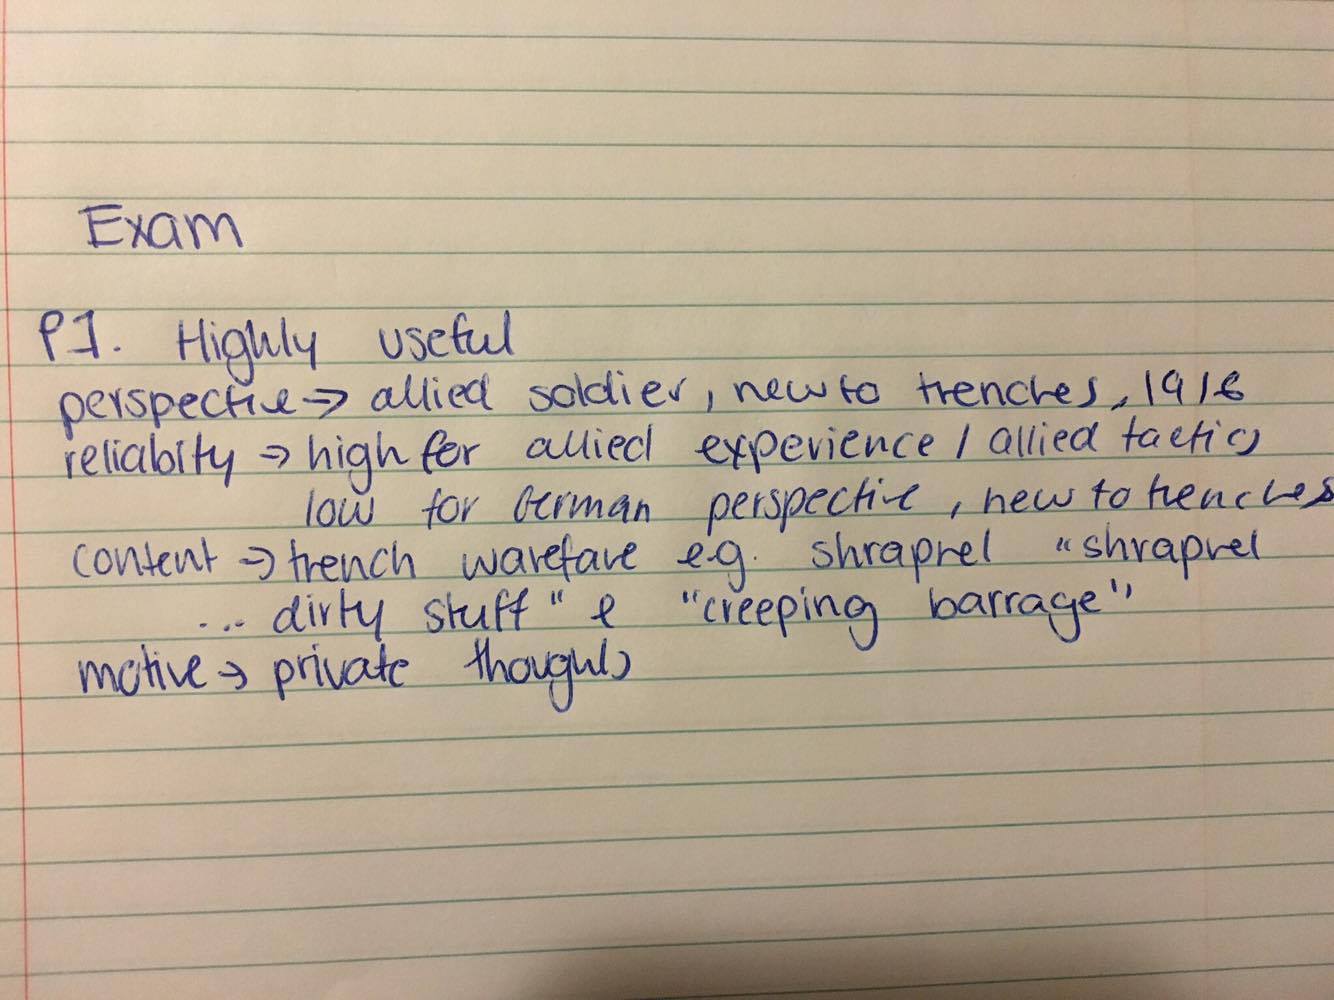 Exam
P1. Highly useful
perspective → allied soldier, new to trenches, 1916
reliabity → high for allied experience / allied tactics
low for German perspective, new to trenches
content → trench warefare e.g. shrapnel "shrapnel
... dirty stuff" & "creeping barrage"
motive → private thoughts